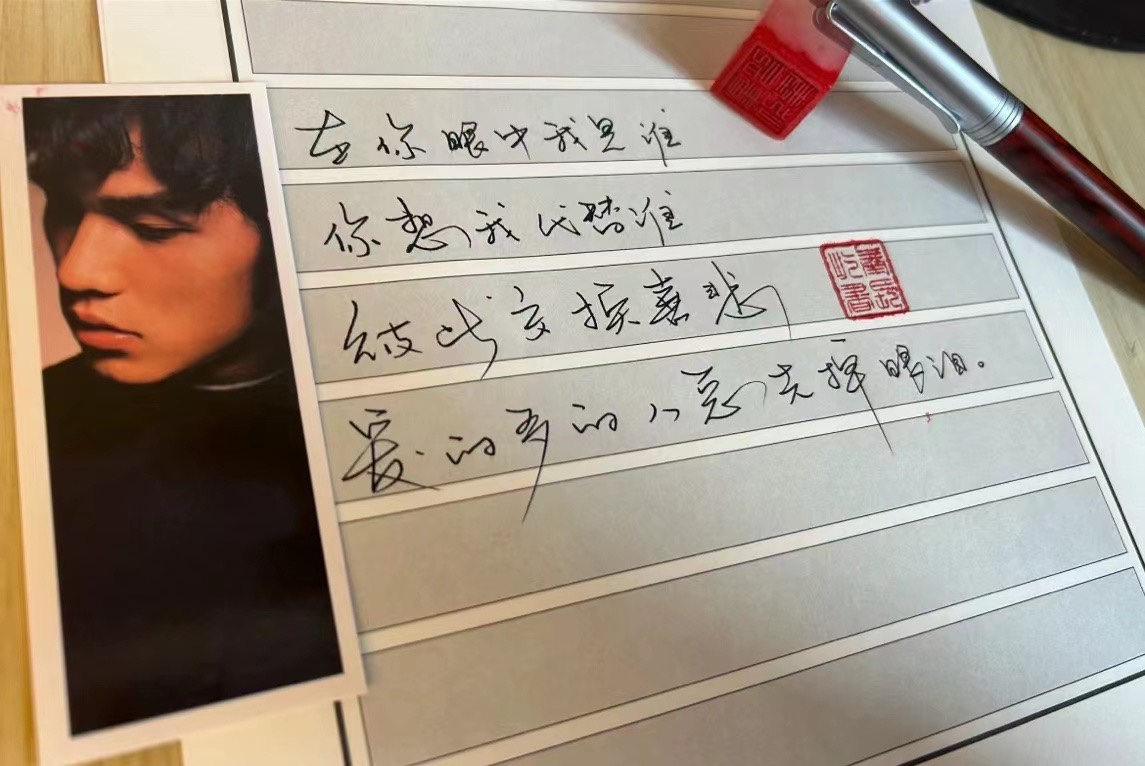 在你眼中我是谁
你想我代替谁
彼此交换喜悲
爱的多的人总先掉眼泪。